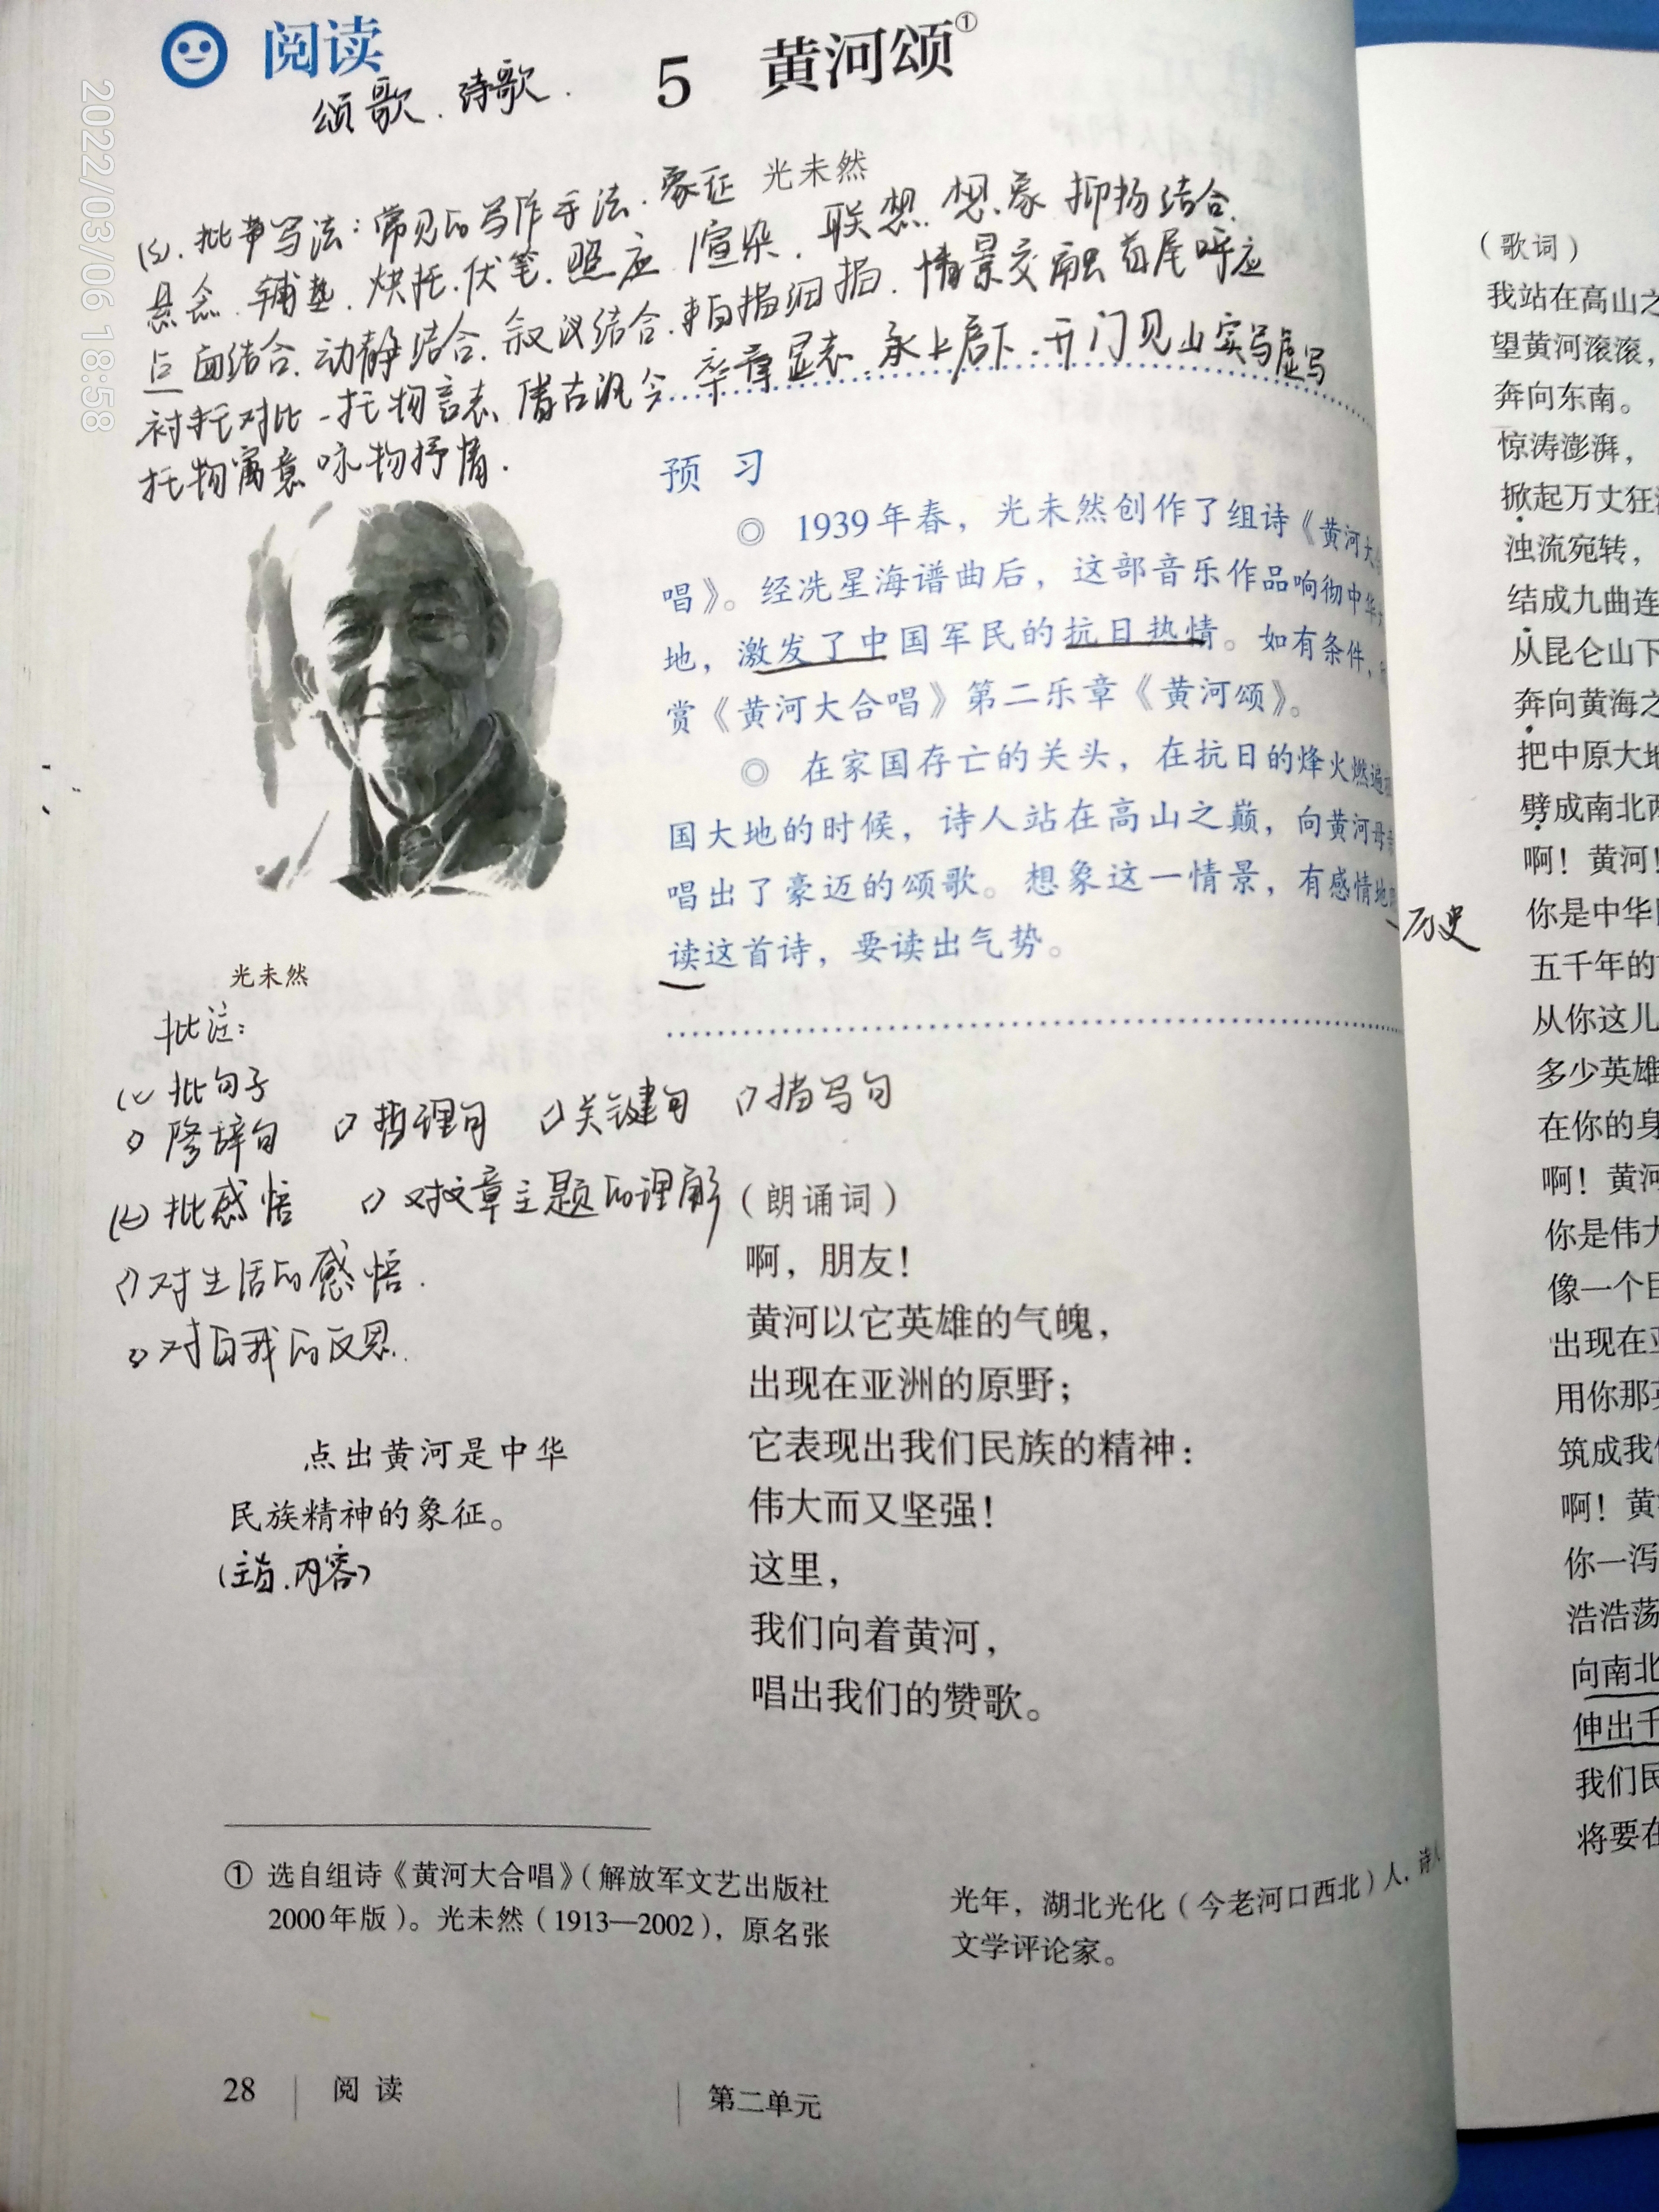 阅读
5 黄河颂①
颂歌.诗歌.
光未然
批带写法:常见的写作手法.象征
悬念.铺垫.烘托.伏笔.照应.渲染.联想.想象 抑扬结合.
点面结合.动静结合.叙议结合.白描细描.情景交融 首尾呼应
衬托对比 托物言志.借古讽今 卒章显志.承上启下.开门见山 实写虚写
托物寓意 咏物抒情.
预 习
◎ 1939年春，光未然创作了组诗《黄河大
唱》。经冼星海谱曲后，这部音乐作品响彻中华
地，激发了中国军民的抗日热情。如有条件，
赏《黄河大合唱》第二乐章《黄河颂》。
◎ 在家国存亡的关头，在抗日的烽火燃遍
国大地的时候，诗人站在高山之巅，向黄河母
唱出了豪迈的颂歌。想象这一情景，有感情地
读这首诗，要读出气势。
历史
光未然
批注:
批句子
修辞句 哲理句 关键句 描写句
批感悟 对文章主题的理解
对生活的感悟.
对自我的反思.
点出黄河是中华
民族精神的象征。
(主旨.内容)
（朗诵词）
啊，朋友！
黄河以它英雄的气魄，
出现在亚洲的原野；
它表现出我们民族的精神：
伟大而又坚强！
这里，
我们向着黄河，
唱出我们的赞歌。
① 选自组诗《黄河大合唱》（解放军文艺出版社
2000年版）。光未然（1913—2002），原名张
光年，湖北光化（今老河口西北）人，诗
文学评论家。
28 阅 读 第二单元
（歌词）
我站在高山之
望黄河滚滚，
奔向东南。
惊涛澎湃，
掀起万丈狂
浊流宛转，
结成九曲连
从昆仑山下
奔向黄海之
把中原大地
劈成南北两
啊！黄河！
你是中华
五千年的
从你这儿
多少英雄
在你的身
啊！黄河
你是伟大
像一个巨
出现在亚
用你那英
筑成我们
啊！黄
你一泻
浩浩荡
向南北
伸出千
我们民
将要在
2022/03/06 18:58